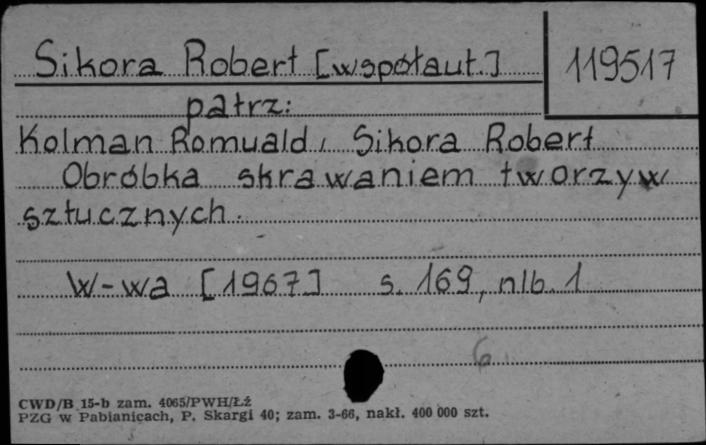 Sikora Robert [współaut.]
119517
patrz:
Kolman Romuald, Sikora Robert
Obróbka skrawaniem tworzyw
sztucznych.
W-wa [1967] s. 169, nlb. 1
6
CWD/B 15-b zam. 4065/PWH/Łź
PZG w Pabianicach, P. Skargi 40; zam. 3-66, nakł. 400 000 szt.